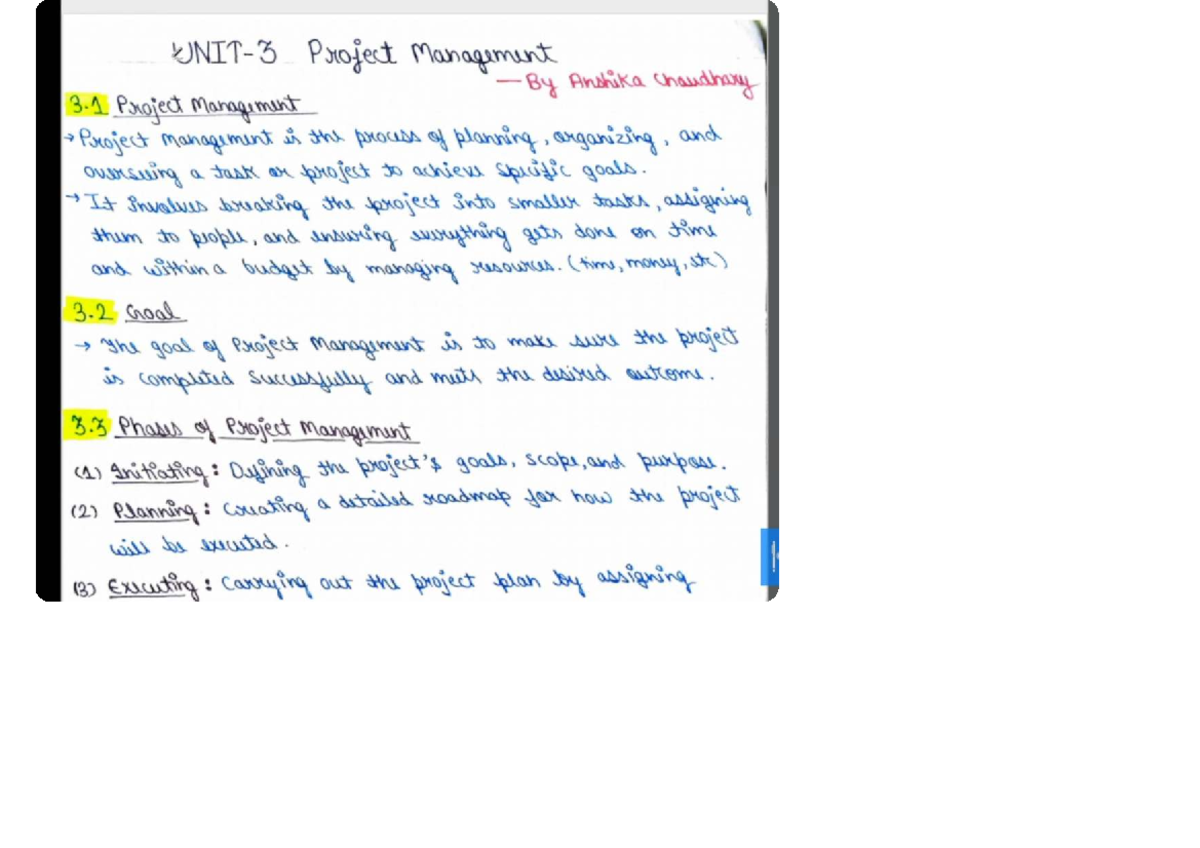 UNIT-3 Project Management
— By Anshika Chaudhary
3.1 Project Management
→ Project Management is the process of planning, organizing, and
overseeing a task or project to achieve specific goals.
→ It involves breaking the project into smaller tasks, assigning
them to people, and ensuring everything gets done on time
and within a budget by managing resources. (time, money, etc)
3.2 Goal
→ The goal of Project Management is to make sure the project
is completed successfully and meets the desired outcome.
3.3 Phases of Project Management
(1) Initiating : Defining the project's goals, scope, and purpose.
(2) Planning : Creating a detailed roadmap for how the project
will be executed.
(3) Executing : Carrying out the project plan by assigning